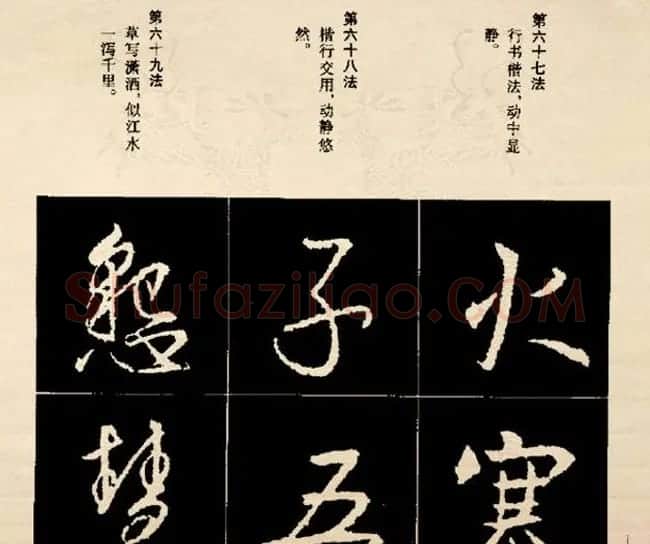 第六十七法
行书楷法，动中显
静。
第六十八法
楷行交用，动静悠
然。
第六十九法
草写潇洒，似江水
一泻千里。
火
寒
子
五
Shufaziliao.COM